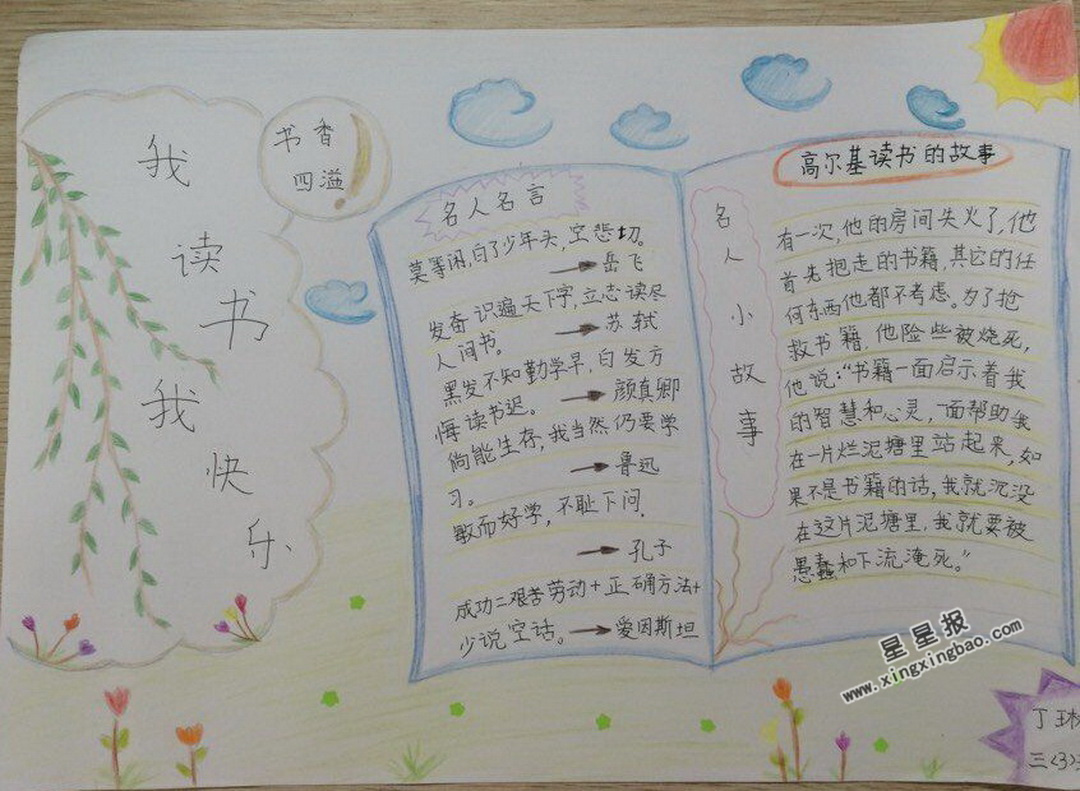 我读书我快乐
书香
四溢
名人名言
莫等闲,白了少年头,空悲切。
→岳飞
发奋识遍天下字,立志读尽
人间书。 →苏轼
黑发不知勤学早,白发方
悔读书迟。 →颜真卿
倘能生存,我当然仍要学
习。 →鲁迅
敏而好学,不耻下问.
→孔子
成功二艰苦劳动+正确方法+
少说空话。→爱因斯坦
名人小故事
高尔基读书的故事
有一次,他的房间失火了,他
首先抱走的书籍,其它的任
何东西他都不考虑。为了抢
救书籍.他险些被烧死,
他说:“书籍一面启示着我
的智慧和心灵,面帮助我
在一片烂泥塘里站起来,如
果不是书籍的话,我就沉没
在这片泥塘里,我就要被
愚蠢和下流淹死。”
星星报
www.xingxingbao.com
丁琳
三(3)